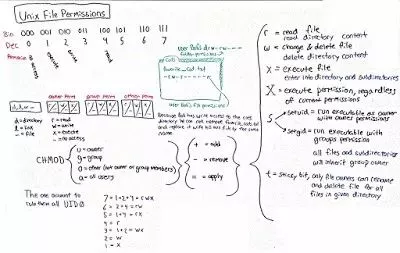 Unix File Permissions
Bin 000 001 010 011 100 101 110 111
Dec 0 1 2 3 4 5 6 7
no access
execute
write
read
owner perm group perm other perm
d = directory
l = link
- = file
r = read
w = write
x = execute
- = no access
CHMOD
u = owner
g = group
o = other (not owner or group members)
a = all users
+ = add
- = remove
= = apply
The one account to
rule them all UID 0
7 = 1+2+4 = rwx
6 = 2+4 = rw
5 = 1+4 = rx
4 = r
3 = 1+2 = wx
2 = w
1 = x
Because Bob has write access to the cats
directory he can not
and replace it with his own file by the same
name
r = read file
read directory content
w = change & delete file
delete directory content
x = execute file
enter into directory and subdirectories
X = execute permission, regardless
of current permissions
s
setuid = run executable as owner
with owner permissions
setgid = run executable with
group's permission
all files and subdirectories
will inherit group owner
t = sticky bit, only file owners can rename
and delete file for all
files in given directory